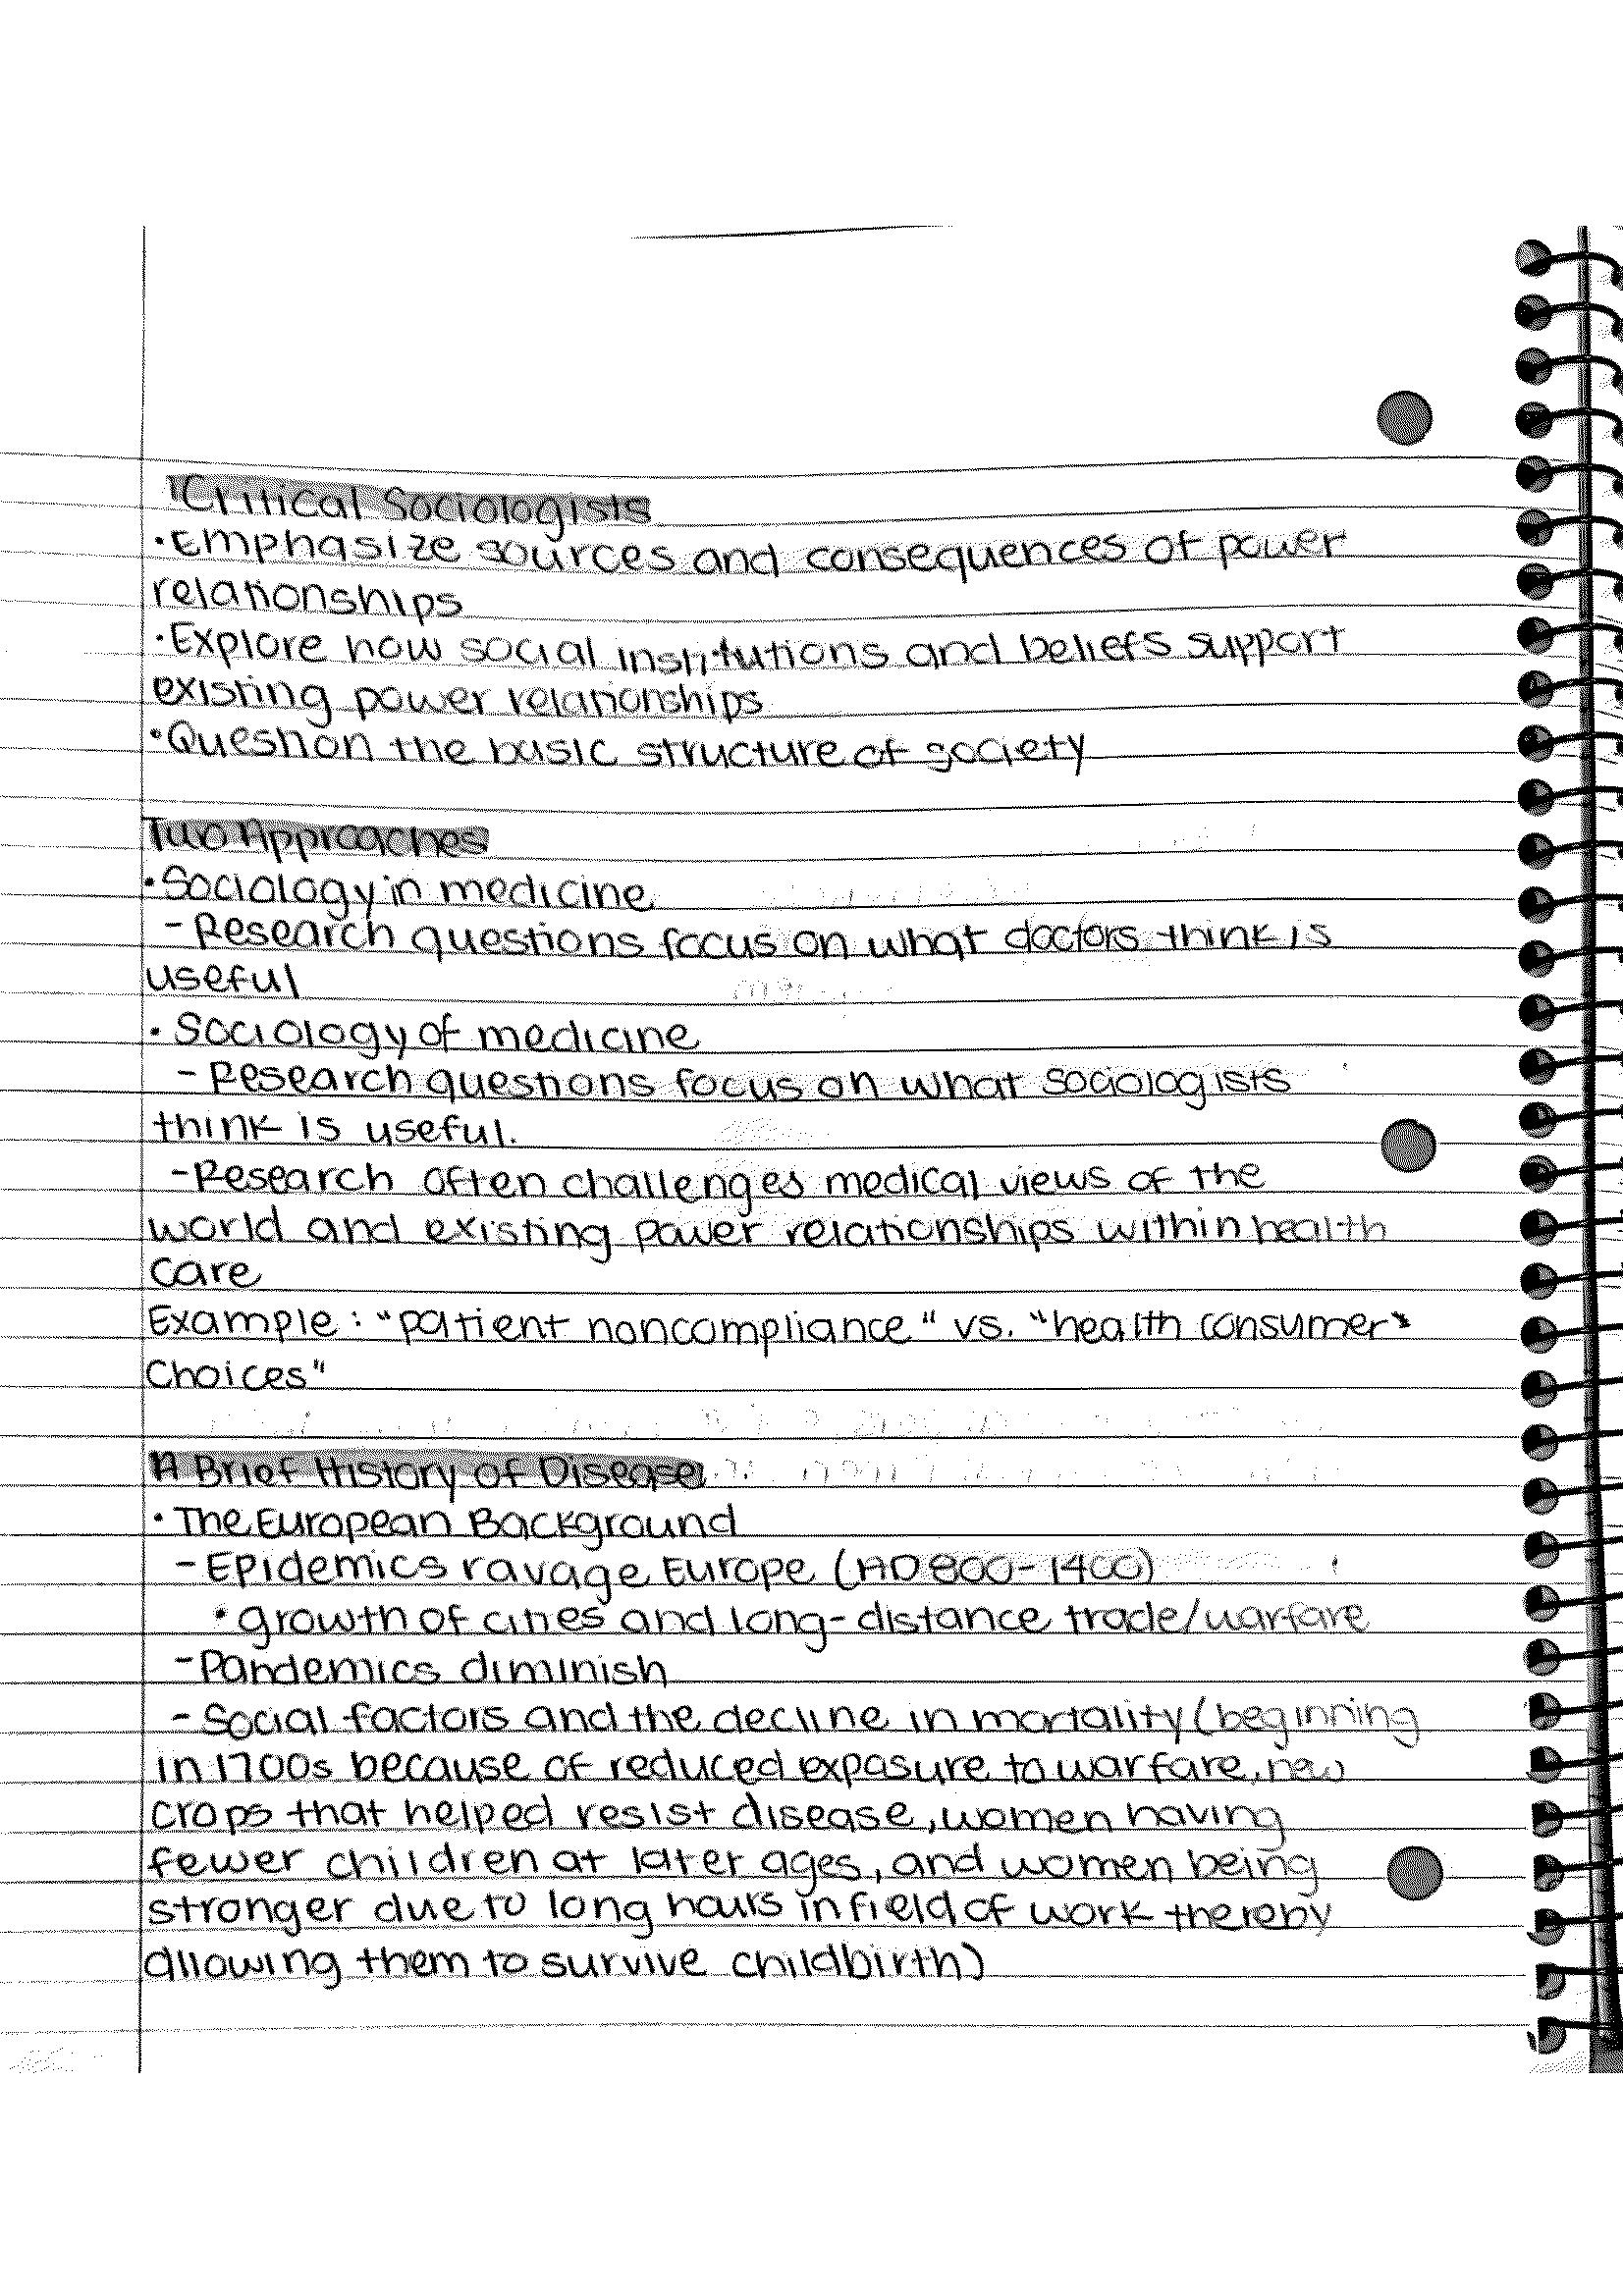 Critical Sociologists
• Emphasize sources and consequences of power
relationships
• Explore how social institutions and beliefs support
existing power relationships
• Question the basic structure of society
Two Approaches
• Sociology in medicine
- Research questions focus on what doctors think is
useful
• Sociology of medicine
- Research questions focus on what sociologists
think is useful.
- Research often challenges medical views of the
world and existing power relationships within health
care
Example: "patient noncompliance" vs. "health consumer"
Choices"
A Brief History of Disease
• The European Background
- Epidemics ravage Europe (AD 800-1400)
• growth of cities and long-distance trade/warfare
- Pandemics diminish
- Social factors and the decline in mortality (beginning
in 1700s because of reduced exposure to warfare, new
crops that helped resist disease, women having
fewer children at later ages, and women being
stronger due to long hours in field of work thereby
allowing them to survive childbirth)